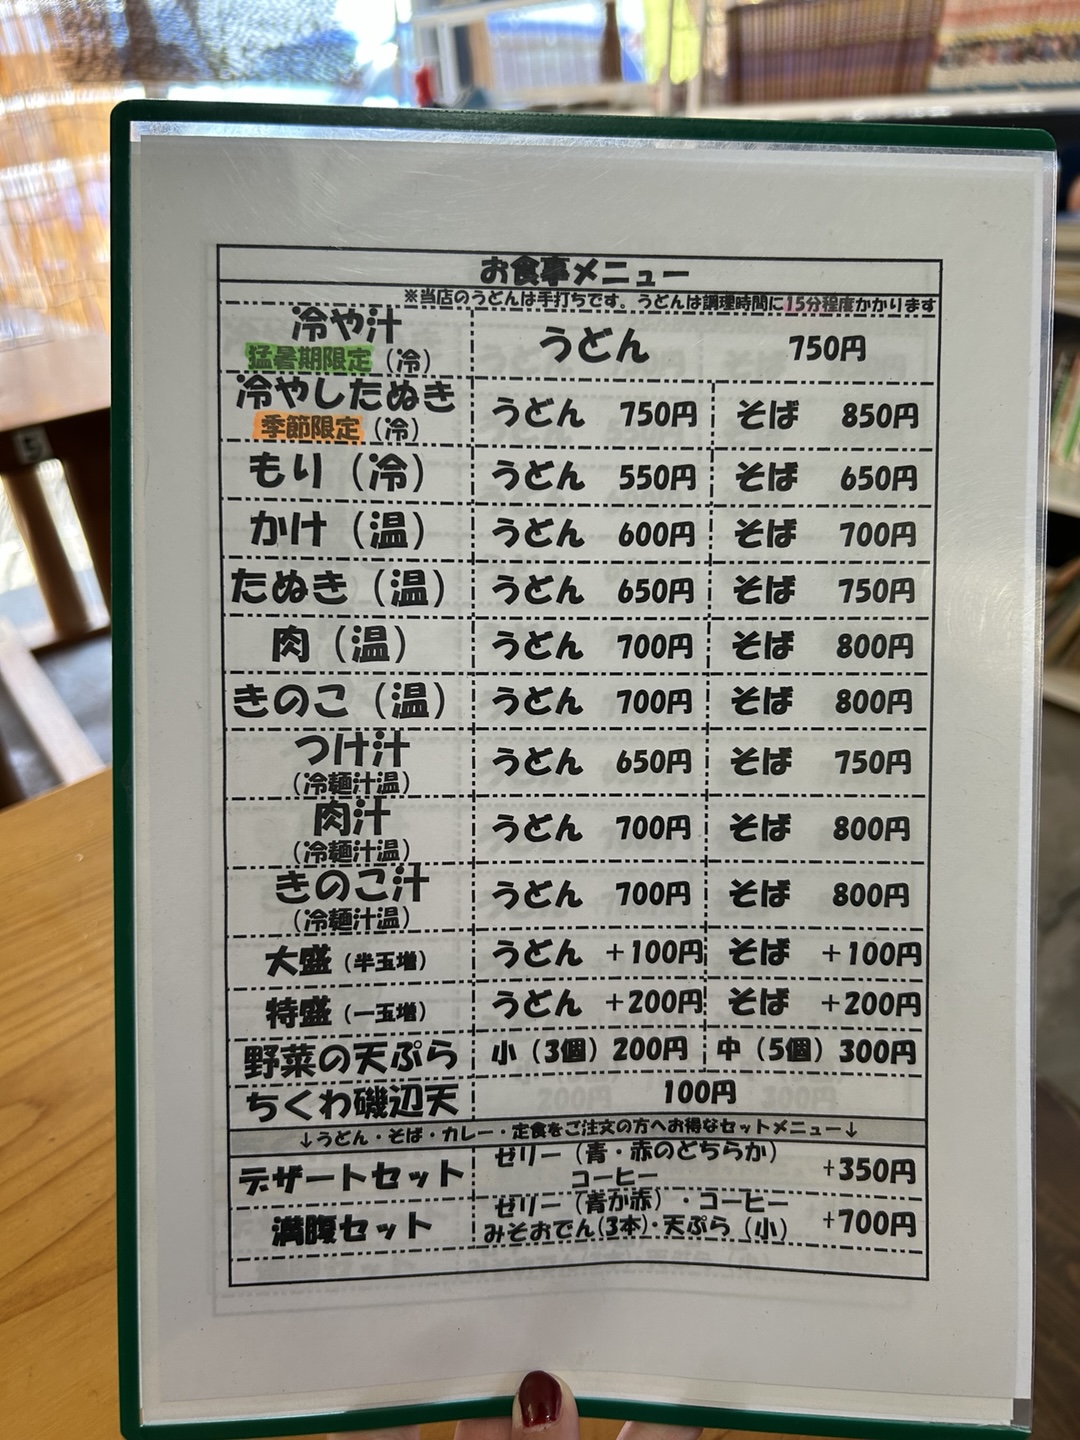 お食事メニュー
※当店のうどんは手打ちです。うどんは調理時間に15分程度かかります
冷や汁
猛暑期限定（冷） うどん 750円
冷やしたぬき
季節限定（冷） うどん 750円 そば 850円
もり（冷） うどん 550円 そば 650円
かけ（温） うどん 600円 そば 700円
たぬき（温） うどん 650円 そば 750円
肉（温） うどん 700円 そば 800円
きのこ（温） うどん 700円 そば 800円
つけ汁
（冷麺汁温） うどん 650円 そば 750円
肉汁
（冷麺汁温） うどん 700円 そば 800円
きのこ汁
（冷麺汁温） うどん 700円 そば 800円
大盛（半玉増） うどん +100円 そば +100円
特盛（一玉増） うどん +200円 そば +200円
野菜の天ぷら 小（3個）200円 中（5個）300円
ちくわ磯辺天 100円
↓うどん・そば・カレー・定食をご注文の方へお得なセットメニュー↓
デザートセット ゼリー（青・赤のどちらか）
コーヒー +350円
満腹セット ゼリー（青か赤）・コーヒー
みそおでん(3本)・天ぷら（小） +700円